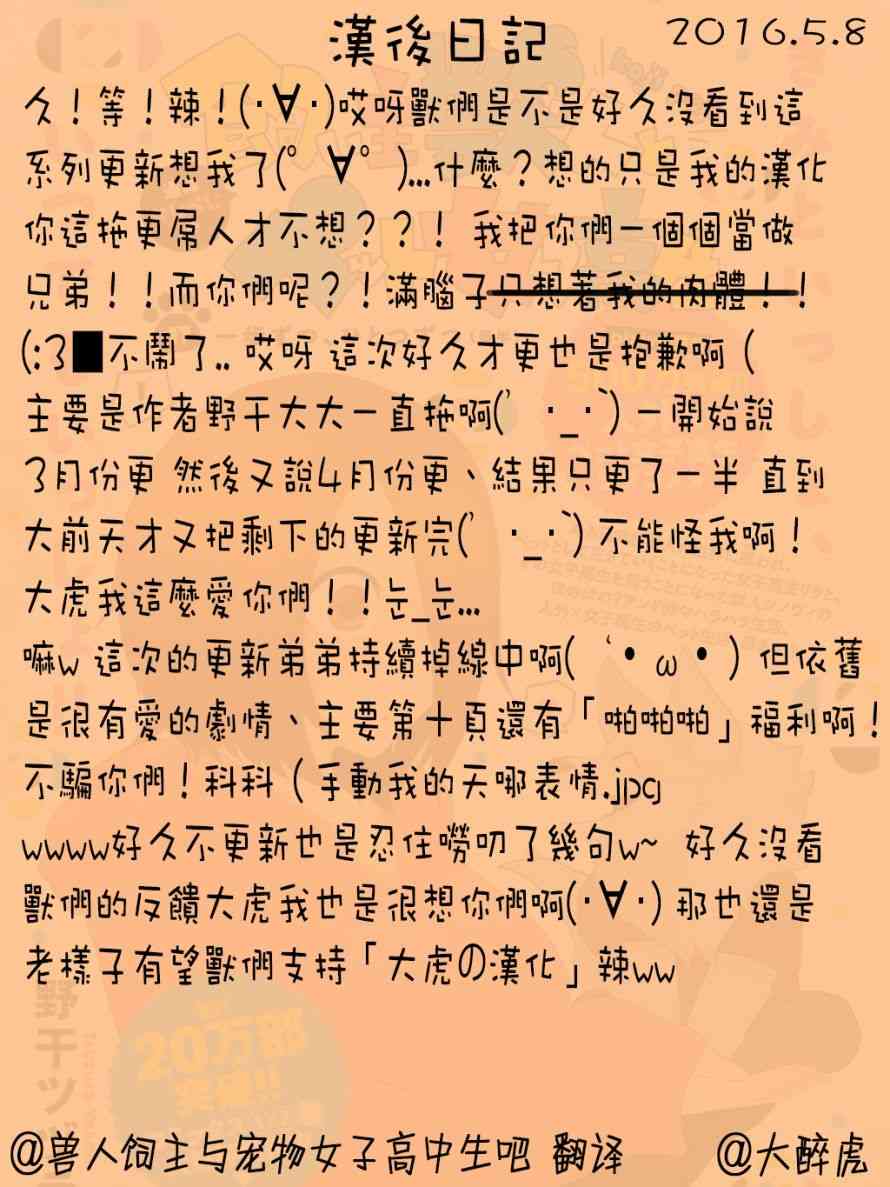 漢後日記 2016.5.8
久！等！辣！(･∀･)哎呀獸們是不是好久沒看到這
系列更新想我了(ﾟ ∀ﾟ )...什麼？想的只是我的漢化
你這拖更屌人才不想？？！ 我把你們一個個當做
兄弟！！而你們呢？！滿腦子只想著我的肉體！！
(:3█不鬧了.. 哎呀 這次好久才更也是抱歉啊（
主要是作者野干大大一直拖啊(′･_･`) 一開始說
3月份更 然後又說4月份更、結果只更了一半 直到
大前天才又把剩下的更新完(′･_･`) 不能怪我啊！
大虎我這麼愛你們！！눈_눈...
嘛w 這次的更新弟弟持續掉線中啊( ‘• ω • ) 但依舊
是很有愛的劇情、主要第十頁還有「啪啪啪」福利啊！
不騙你們！科科（手動我的天哪表情.jpg
wwww好久不更新也是忍住嘮叨了幾句w~ 好久沒看
獸們的反饋大虎我也是很想你們啊(･∀･) 那也還是
老樣子有望獸們支持「大虎の漢化」辣ww
20万部
突破!!
野干ツ
@兽人饲主与宠物女子高中生吧 翻译 @大醉虎